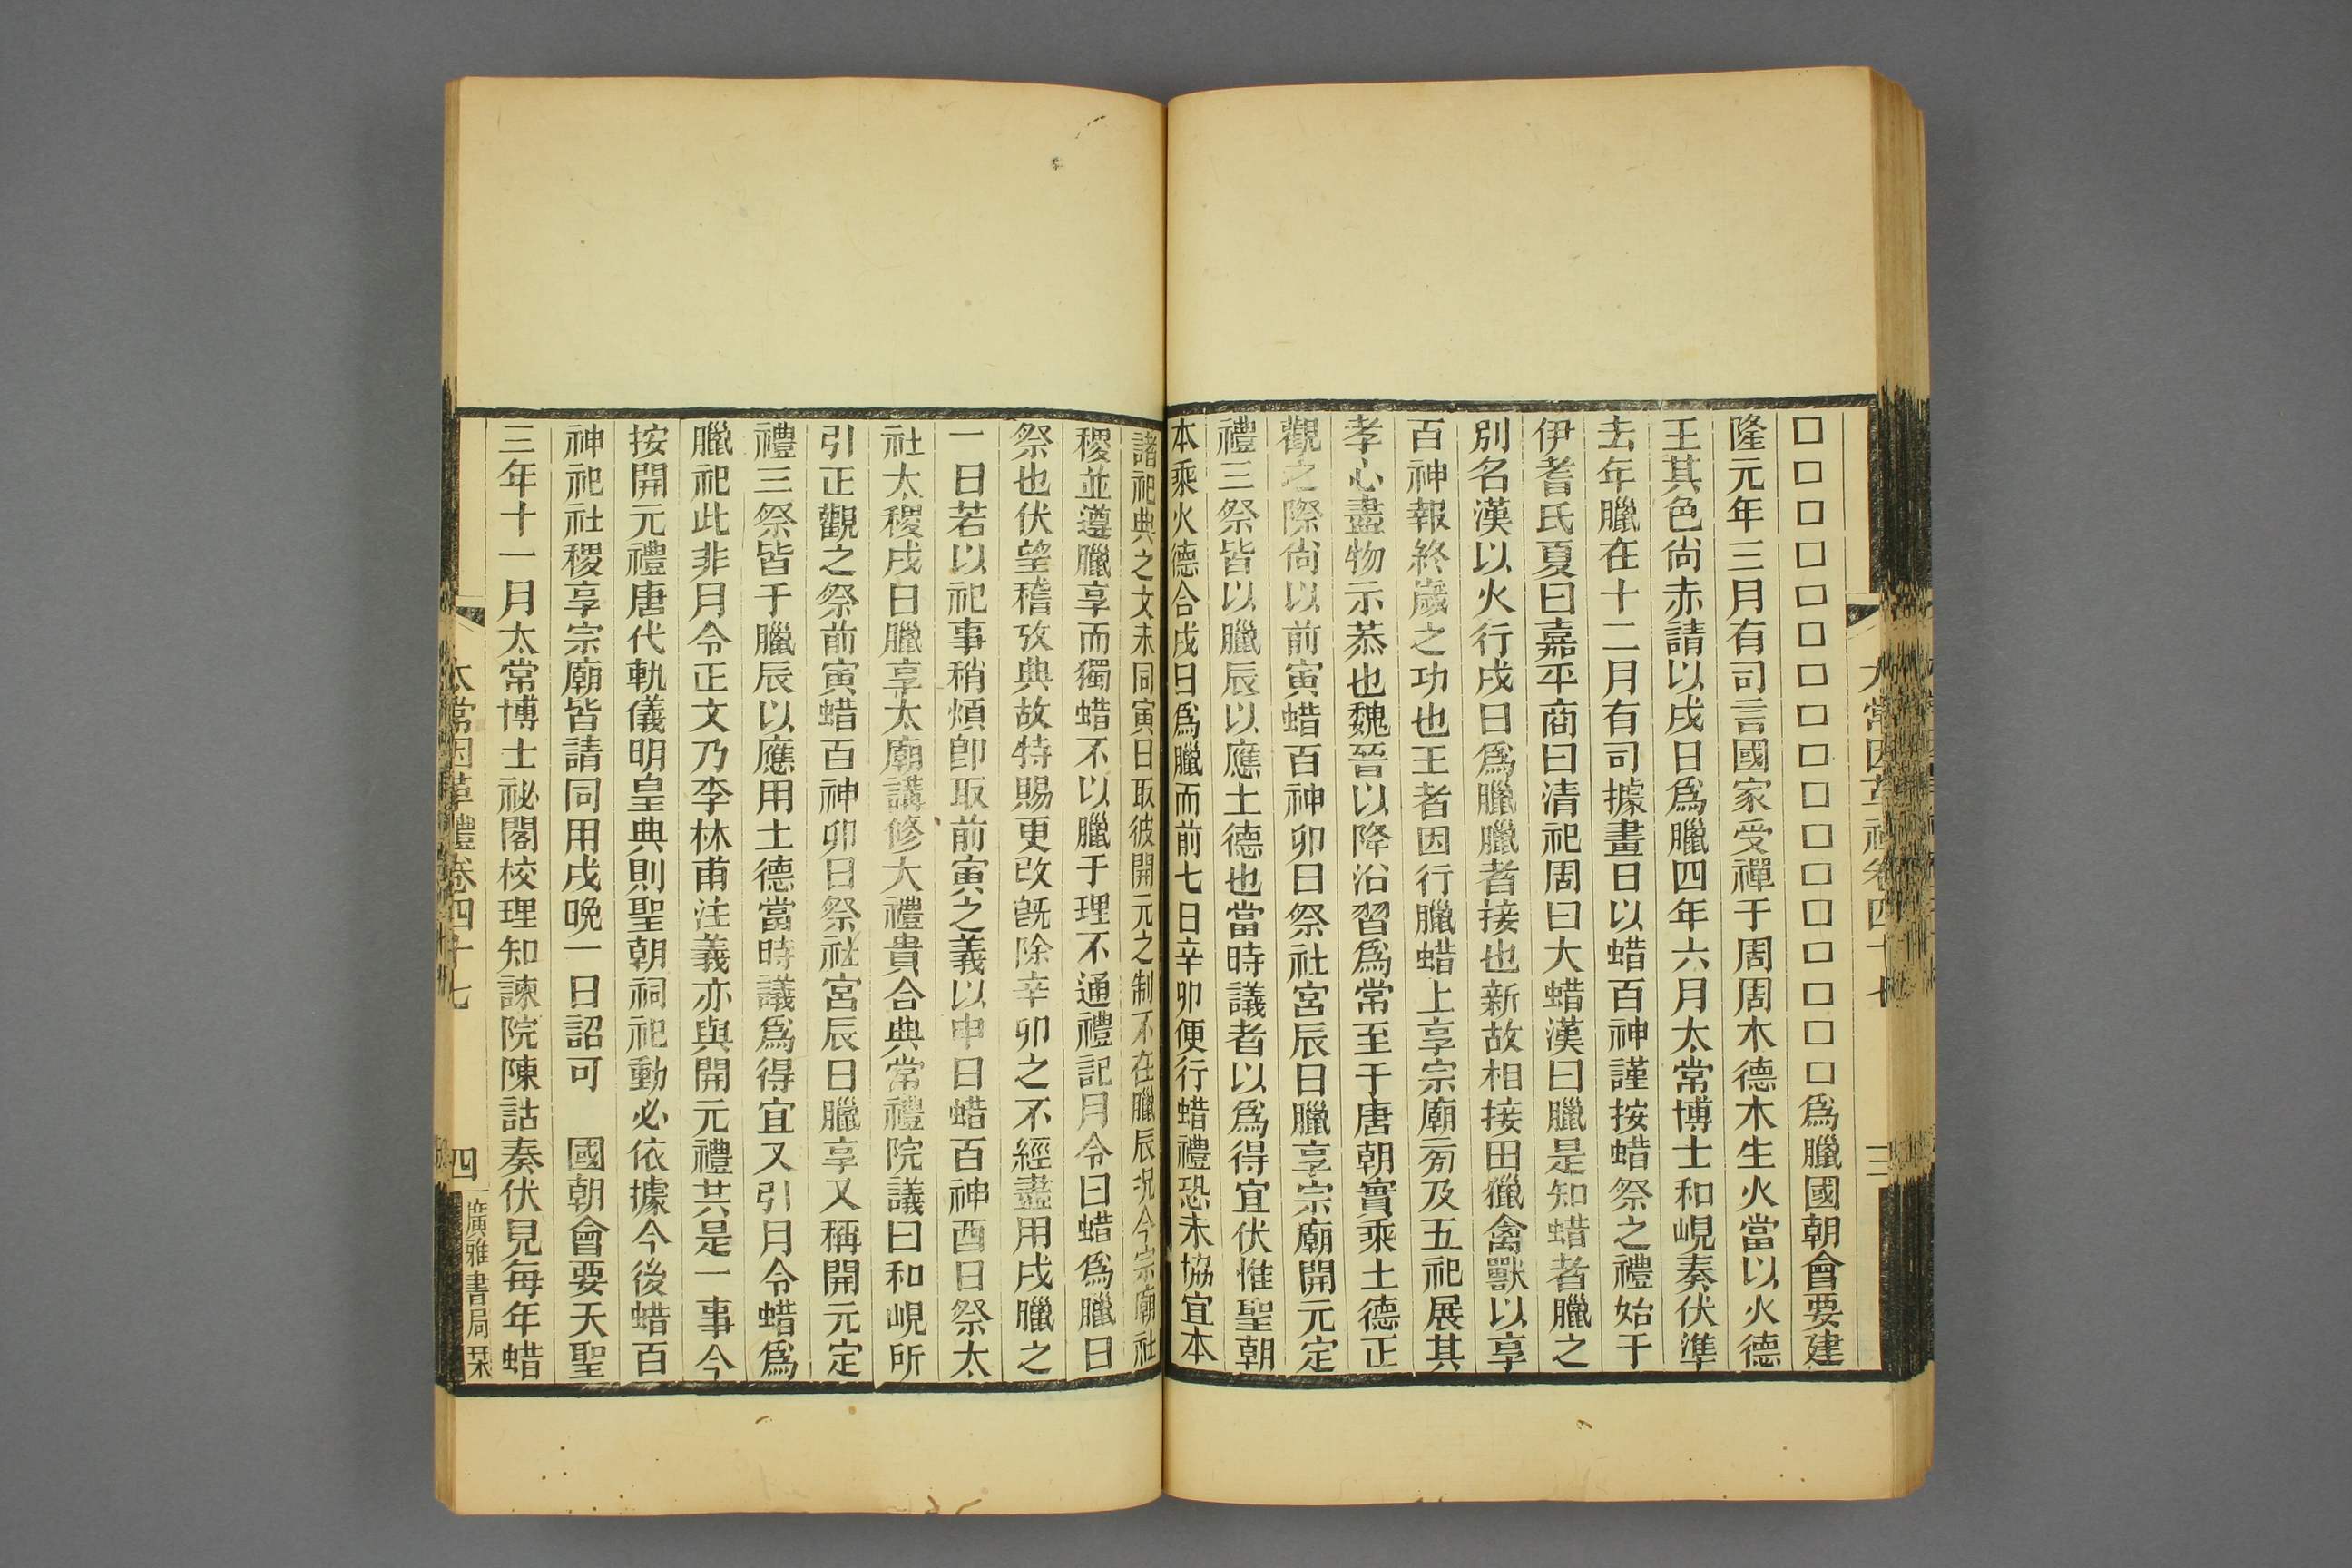 □□□□□□□□□□□□□□□□□為臘國朝會要建
隆元年三月有司言國家受禪于周周木德木生火當以火德
王其色尙赤請以戌日爲臘四年六月太常博士和峴奏伏準
去年臘在十二月有司據畫日以蜡百神謹按蜡祭之禮始于
伊耆氏夏曰嘉平商曰清祀周曰大蜡漢曰臘是知蜡者臘之
別名漢以火行戌日爲臘臘者接也新故相接田獵禽獸以享
百神報終歲之功也王者因行臘蜡上享宗廟旁及五祀展其
孝心盡物示恭也魏晉以降沿習爲常至于唐朝實乘土德正
觀之際尙以前寅蜡百神卯日祭社宮辰日臘享宗廟開元定
禮三祭皆以臘辰以應土德也當時議者以爲得宜伏惟聖朝
本乘火德合戌日爲臘而前七日辛卯便行蜡禮恐未協宜本
諸祀典之文未同寅日取彼開元之制不在臘辰況今宗廟社
稷並遵臘享而獨蜡不以臘于理不通禮記月令曰蜡爲臘曰
祭也伏望稽攷典故特賜更改旣除辛卯之不經盡用戌臘之
一日若以祀事稍煩卽取前寅之義以申日蜡百神酉日祭太
社太稷戌日臘享太廟講修大禮貴合典常禮院議曰和峴所
引正觀之祭前寅蜡百神卯日祭社宮辰日臘享又稱開元定
禮三祭皆于臘辰以應用土德當時議爲得宜又引月令蜡爲
臘祀此非月令正文乃李林甫注義亦與開元禮共是一事今
按開元禮唐代軌儀明皇典則聖朝祠祀動必依據今後蜡百
神祀社稷享宗廟皆請同用戌晚一日詔可　國朝會要天聖
三年十一月太常博士祕閣校理知諫院陳詁奏伏見每年蜡
太常因革禮卷四十七　四　廣雅書局栞